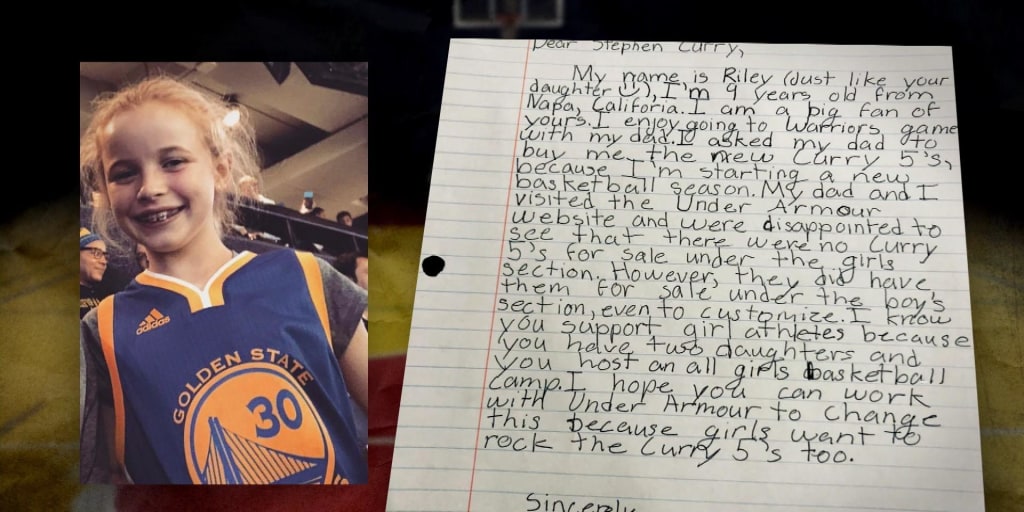 adidas
GOLDEN STATE
30
Dear Stephen Curry,
My name is Riley (just like your
daughter), I'm 9 years old from
Napa, Califoria. I am a big fan of
yours. I enjoy going to Warriors game
with my dad. I asked my dad to
buy me the new Curry 5's,
because I'm starting a new
basketball season. My dad and I
visited the Under Armour
website and were disappointed to
see that there were no Curry
5's for sale under the girls
section. However, they did have
them for sale under the boy's
section, even to customize. I know
you support girl athletes because
you have two daughters and
you host an all girls basketball
camp. I hope you can work
with Under Armour to change
this because girls want to
rock the Curry 5's too.
Sincerely